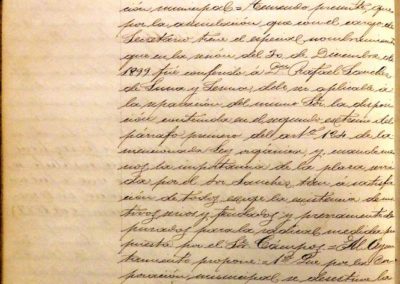 ción municipal = Teniendo presente que
por la acumulación que con el cargo de
Secretario tiene el especial nombramiento
que en la sesión del 30 de Diciembre de
1899 fué conferido á Don Rafael Sanchez
de Luna y Lennox, debe ser aplicable á
la reparación del mismo Sor la disposi
ción contenida en el segundo extremo del
párrafo primero del artº 124 de la
mencionada Ley orgánica y, cuando me
nos la importancia de la plaza servida
por el Sor Sanchez, tan á satisfac
ción de todos exige la existencia de mo
tivos serios y fundados y previamente de
purados para la radical medida pro
puesta por el Sor Campos = Al Ayun
tamiento propone = 1º Que por la Cor
poración municipal se desestime la